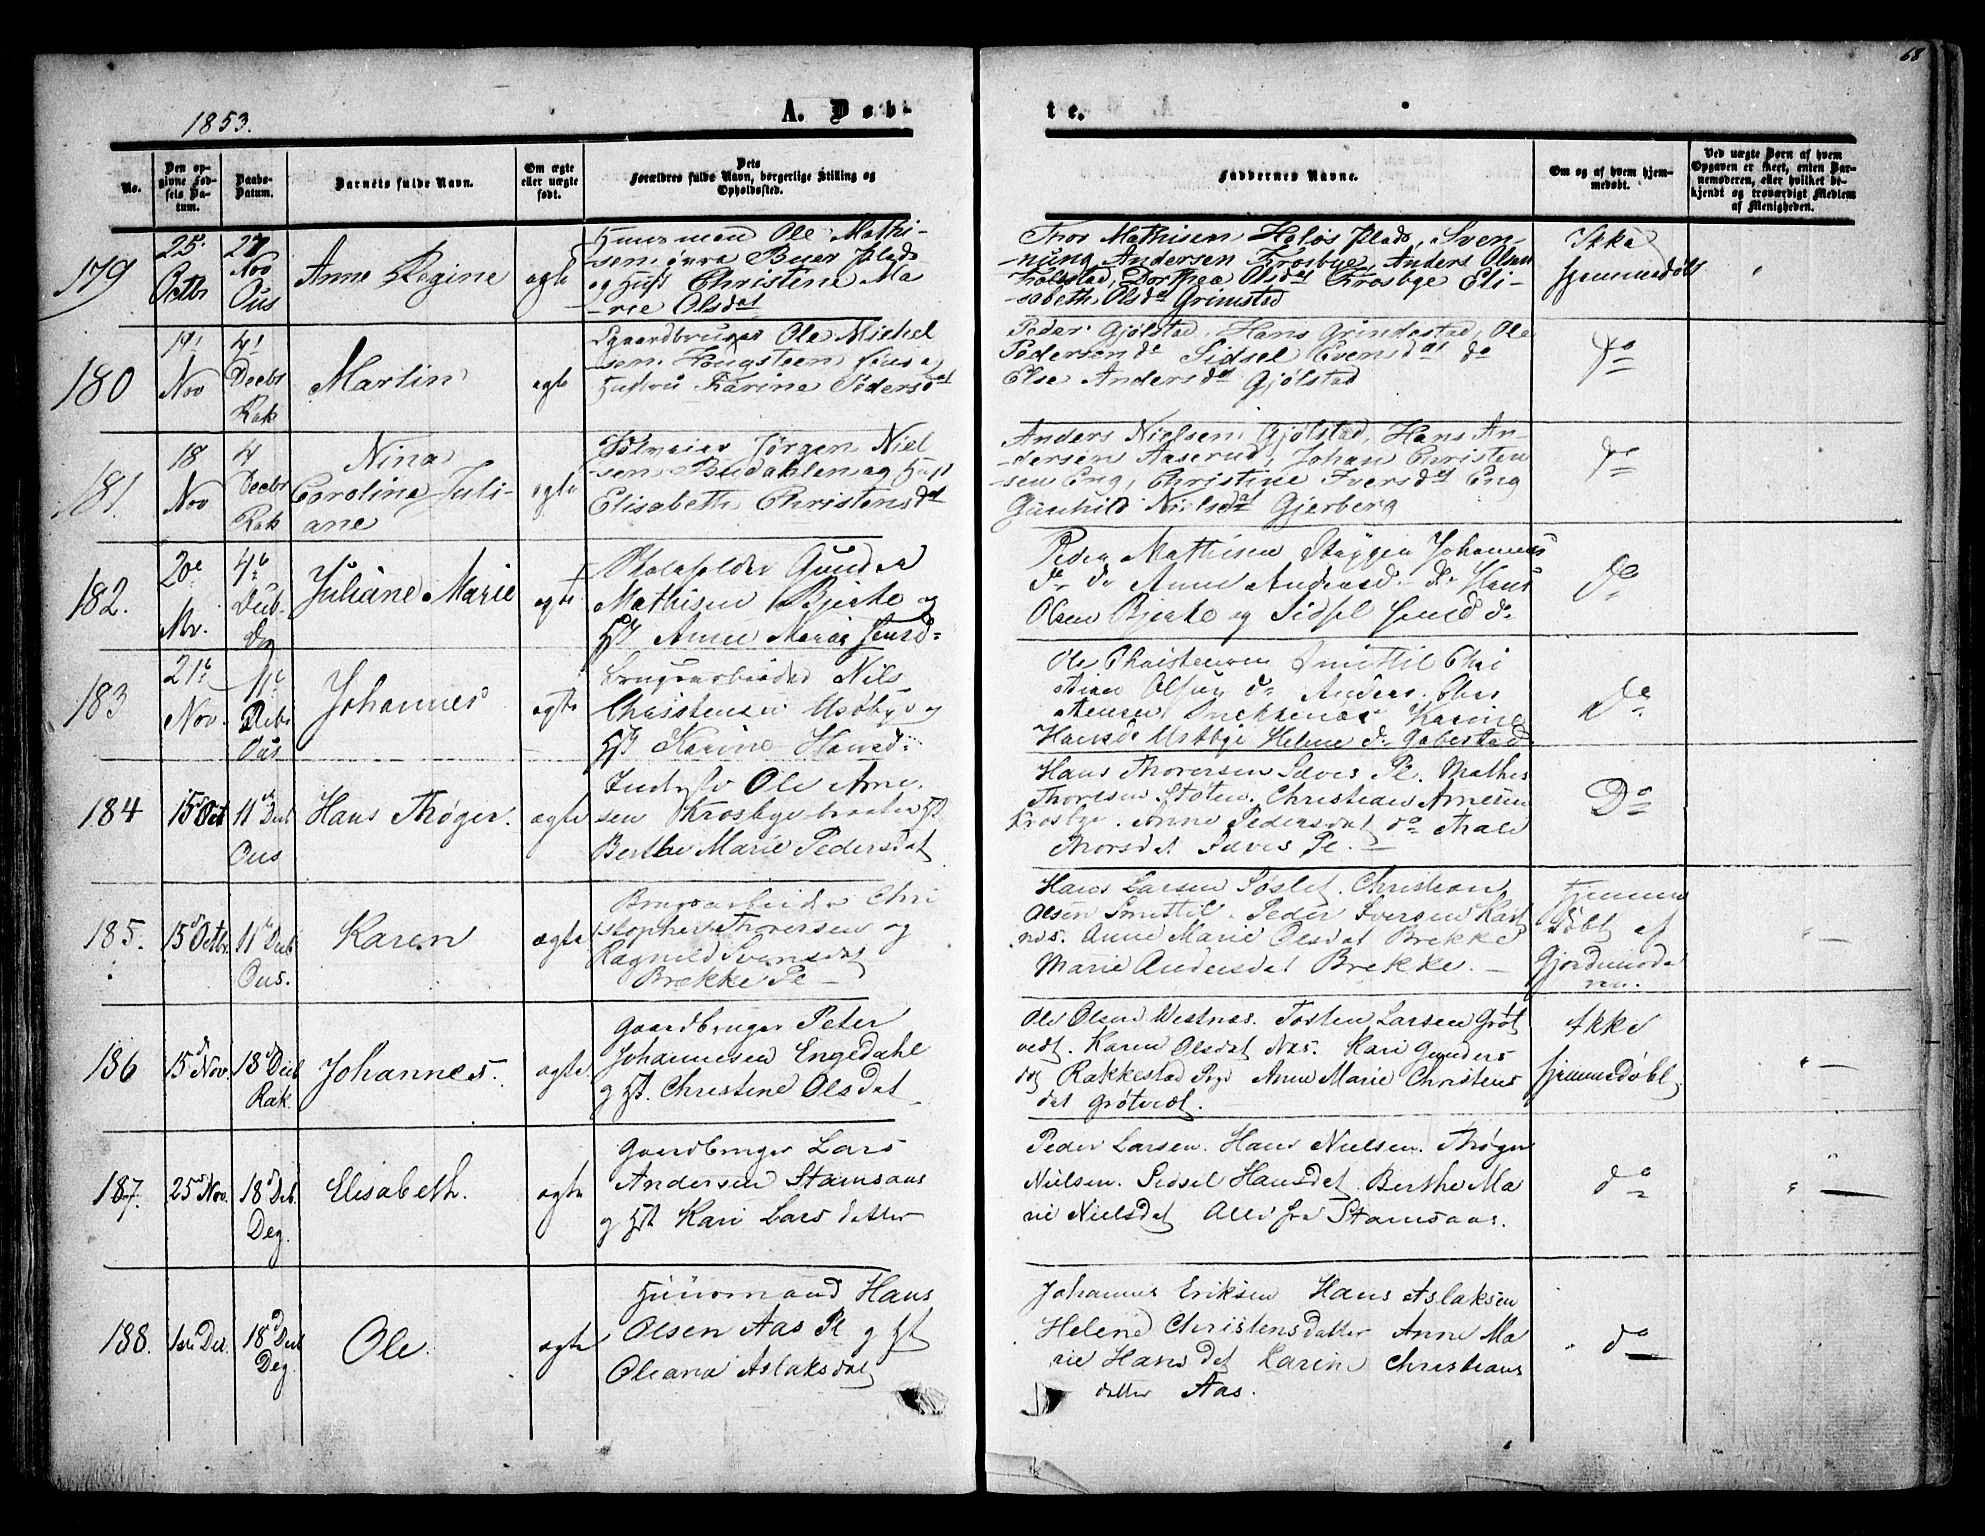 68
1853.
A. Døb-
te.
No.
Den op-
givne Fød-
sels Da-
tum.
Daabs-
Datum.
Barnets fulde Navn.
Om ægte
eller uægte
født.
Dets
Forældres fulde Navn, borgerlige Stilling og
Opholdssted.
Faddernes Navne.
Om og af hvem hjem-
medøbt.
Ved uægte Børn af hvem
Opgaven er skeet, enten Bar-
nemoderen, eller hvilket be-
kjendt og troværdigt Medlem
af Menigheden.
179
25
Octbr
27
Nov
Ous
Anne Regine
ægte
Huusmand Ole Mathi-
sen Buer Plads
og Hust Christine Ma
rie Olsdat
Thor Mathisen Plads, Sven-
nung Andersen Krosbye, Anders Olsen
Dorthea Olsdat Krosbye Eli-
sabeth Olsdat Grimstad
Ikke
hjemmedøbt
180
14
Nov
4
Decbr
Rak
Martin
ægte
Gaardbruger Ole Michel
sen Hougsteen og
Hustru Karine Pedersdat
Peder Gjølstad, Hans Grindestad, Ole
Pedersen do Sidsel Evensdat do
Else Andersdat Gjølstad
do
181.
18
Nov
4
Decbr
Rak
Nina
Caroline Juli-
ane
ægte
Jørgen Niel
sen Budahlen og Hust
Elisabeth Christensdat
Anders Nielsen Gjølstad, Hans An-
dersen Aaserud, Johan Christen
sen Eng, Christine Iversdat Eng
Gunhild Nielsdat Gjerberg
do
182.
20
Nv.
4
Decb.
Dg
Juliane Marie
ægte
Gunder
Mathisen Bjerke og
Hst Anne Marie Jensd
Peder Mathisen Skøggen Johannes
do do Anne Andersd do Hans
Olsen Bjerke og Sidsel Jensd do
do
183
21
Nov.
11
Decbr
Ous
Johannes
ægte
Brugsarbeider Nils
Christensen og
Hst Karine Hansd
Ole Christensen Smittil Chri
stian Olsen do Anders Chri
stensen Karine
Hansd Helene do
do
184
15 Oct
11 Decb
Ous
Hans Thøger.
ægte
Inderst Ole Arne
sen Krosbyebraaten Hst
Berthe Marie Pedersdat
Hans Thoresen Sæves Pl. Mathis
Thoresen Christian Arnesen
Krosbye. Anne Pedersdat do
Thorsdat Sæves Pl.
Do
185.
15 Octbr
11 Decb
Ous.
Karen
ægte
Brugsarbeider Chri
stopher Thoresen og
Ragnild Svensdat
Brække Pl
Hans Larsen Christian
Olsen Smittil. Peder Iversen
Anne Marie Olsdat Brekke
Marie Andersdat Brekke.
Hjemme
døbt af
Gjordemode
ren.
186
15 Nov.
18 Decb
Rak.
Johannes.
ægte
Gaardbruger Peter
Johannesen Engedahl
og Hst. Christine Olsdat
Ole Olsen Westnæs. Tosten Larsen Grøt
vedt. Karen Olsdat Næs. Kari Gunders
dat Rakkestad Anne Marie Christens
dat Grøtvedt.
Ikke
hjemmedøbt
187.
25 Nov.
18 Deb.
Deg.
Elisabeth.
ægte
Gaardbruger Lars
Andersen Stamsaas
og Hst Kari Larsdatter
Peder Larsen. Hans Nielsen. Thøger
Nielsen. Sidsel Hansdat. Berthe Ma
rie Nielsdat Alle fra Stamsaas.
do
188.
1ste Dec.
18 Decb
Deg.
Ole.
ægte
Huusmand Hans
Olsen Aas Pl og Hst
Oleana Aslaksdat
Johannes Eriksen Hans Aslaksen
Helene Christensdatter Anne Ma
rie Hansdat Karine Christians
datter Aas.
do